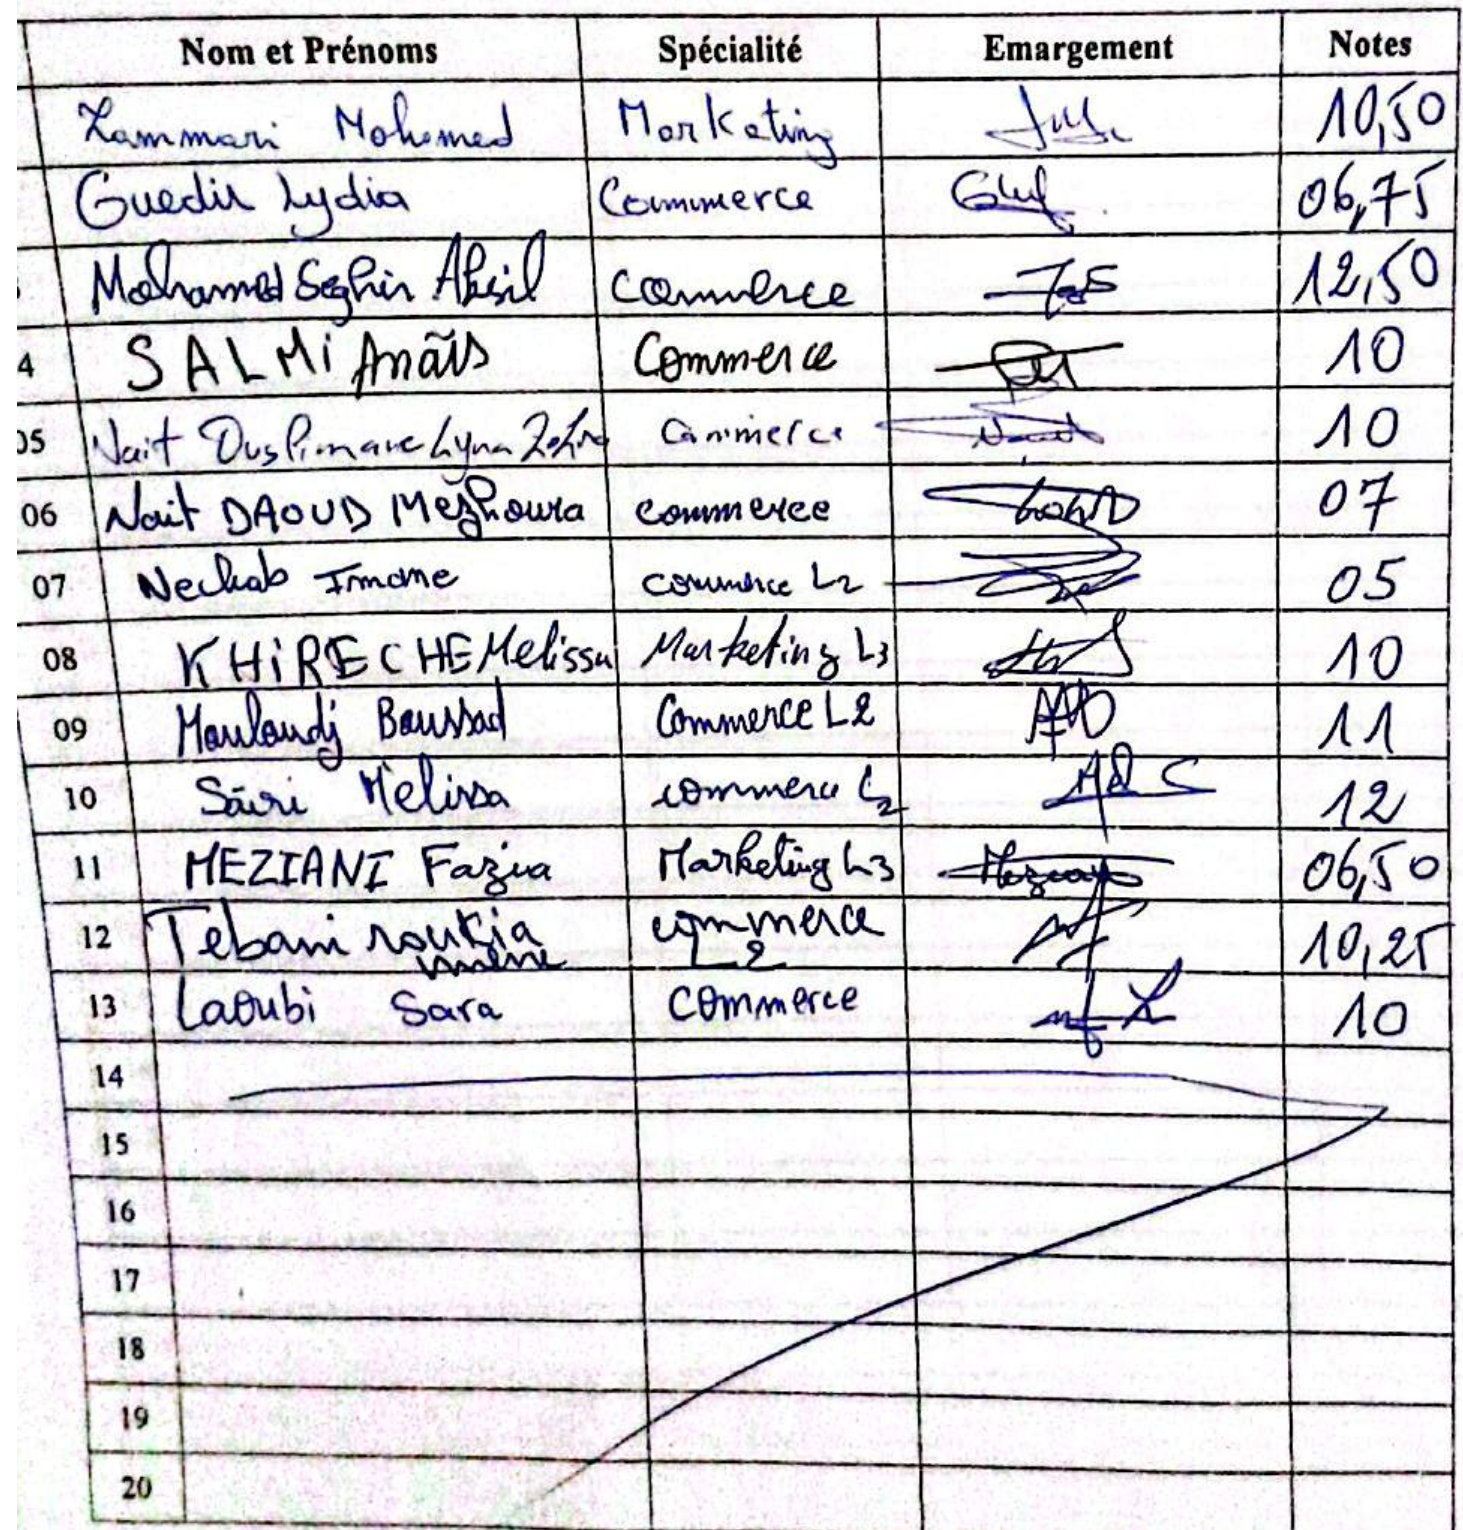 Nom et Prénoms Spécialité Emargement Notes
Zammari Mohamed Marketing 10,50
Guedir Lydia Commerce 06,75
Mohamed Seghir Aksil Commerce 12,50
4 SALMi Anaïs Commerce 10
05 Nait Ouslimane Lyna Commerce 10
06 Nait DAOUD Mezhoura commerce 07
07 Nechab Imane commerce L2 05
08 KHiRECHE Melissa Marketing L3 10
09 Mouloudj Boussad Commerce L2 11
10 Saïri Melissa commerce L2 12
11 MEZIANI Fazia Marketing L3 06,50
12 Tebani roukia commerce 10,25
imene L2
13 Laoubi Sara Commerce 10
14
15
16
17
18
19
20